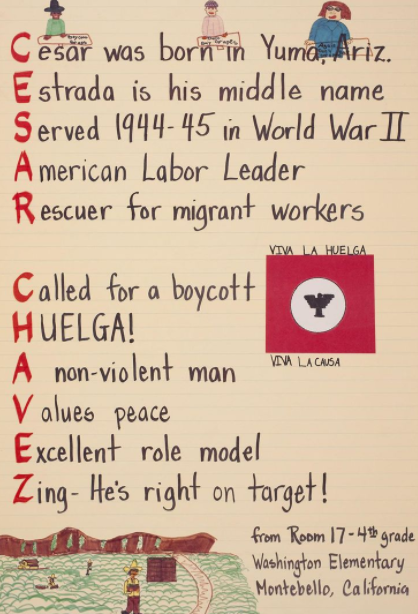 Cesar was born in Yuma, Ariz.
Estrada is his middle name
Served 1944-45 in World War II
American Labor Leader
Rescuer for migrant workers
VIVA LA HUELGA
Called for a boycott
HUELGA!
VIVA LA CAUSA
A non-violent man
Values peace
Excellent role model
Zing- He's right on target!
from Room 17-4th grade
Washington Elementary
Montebello, California